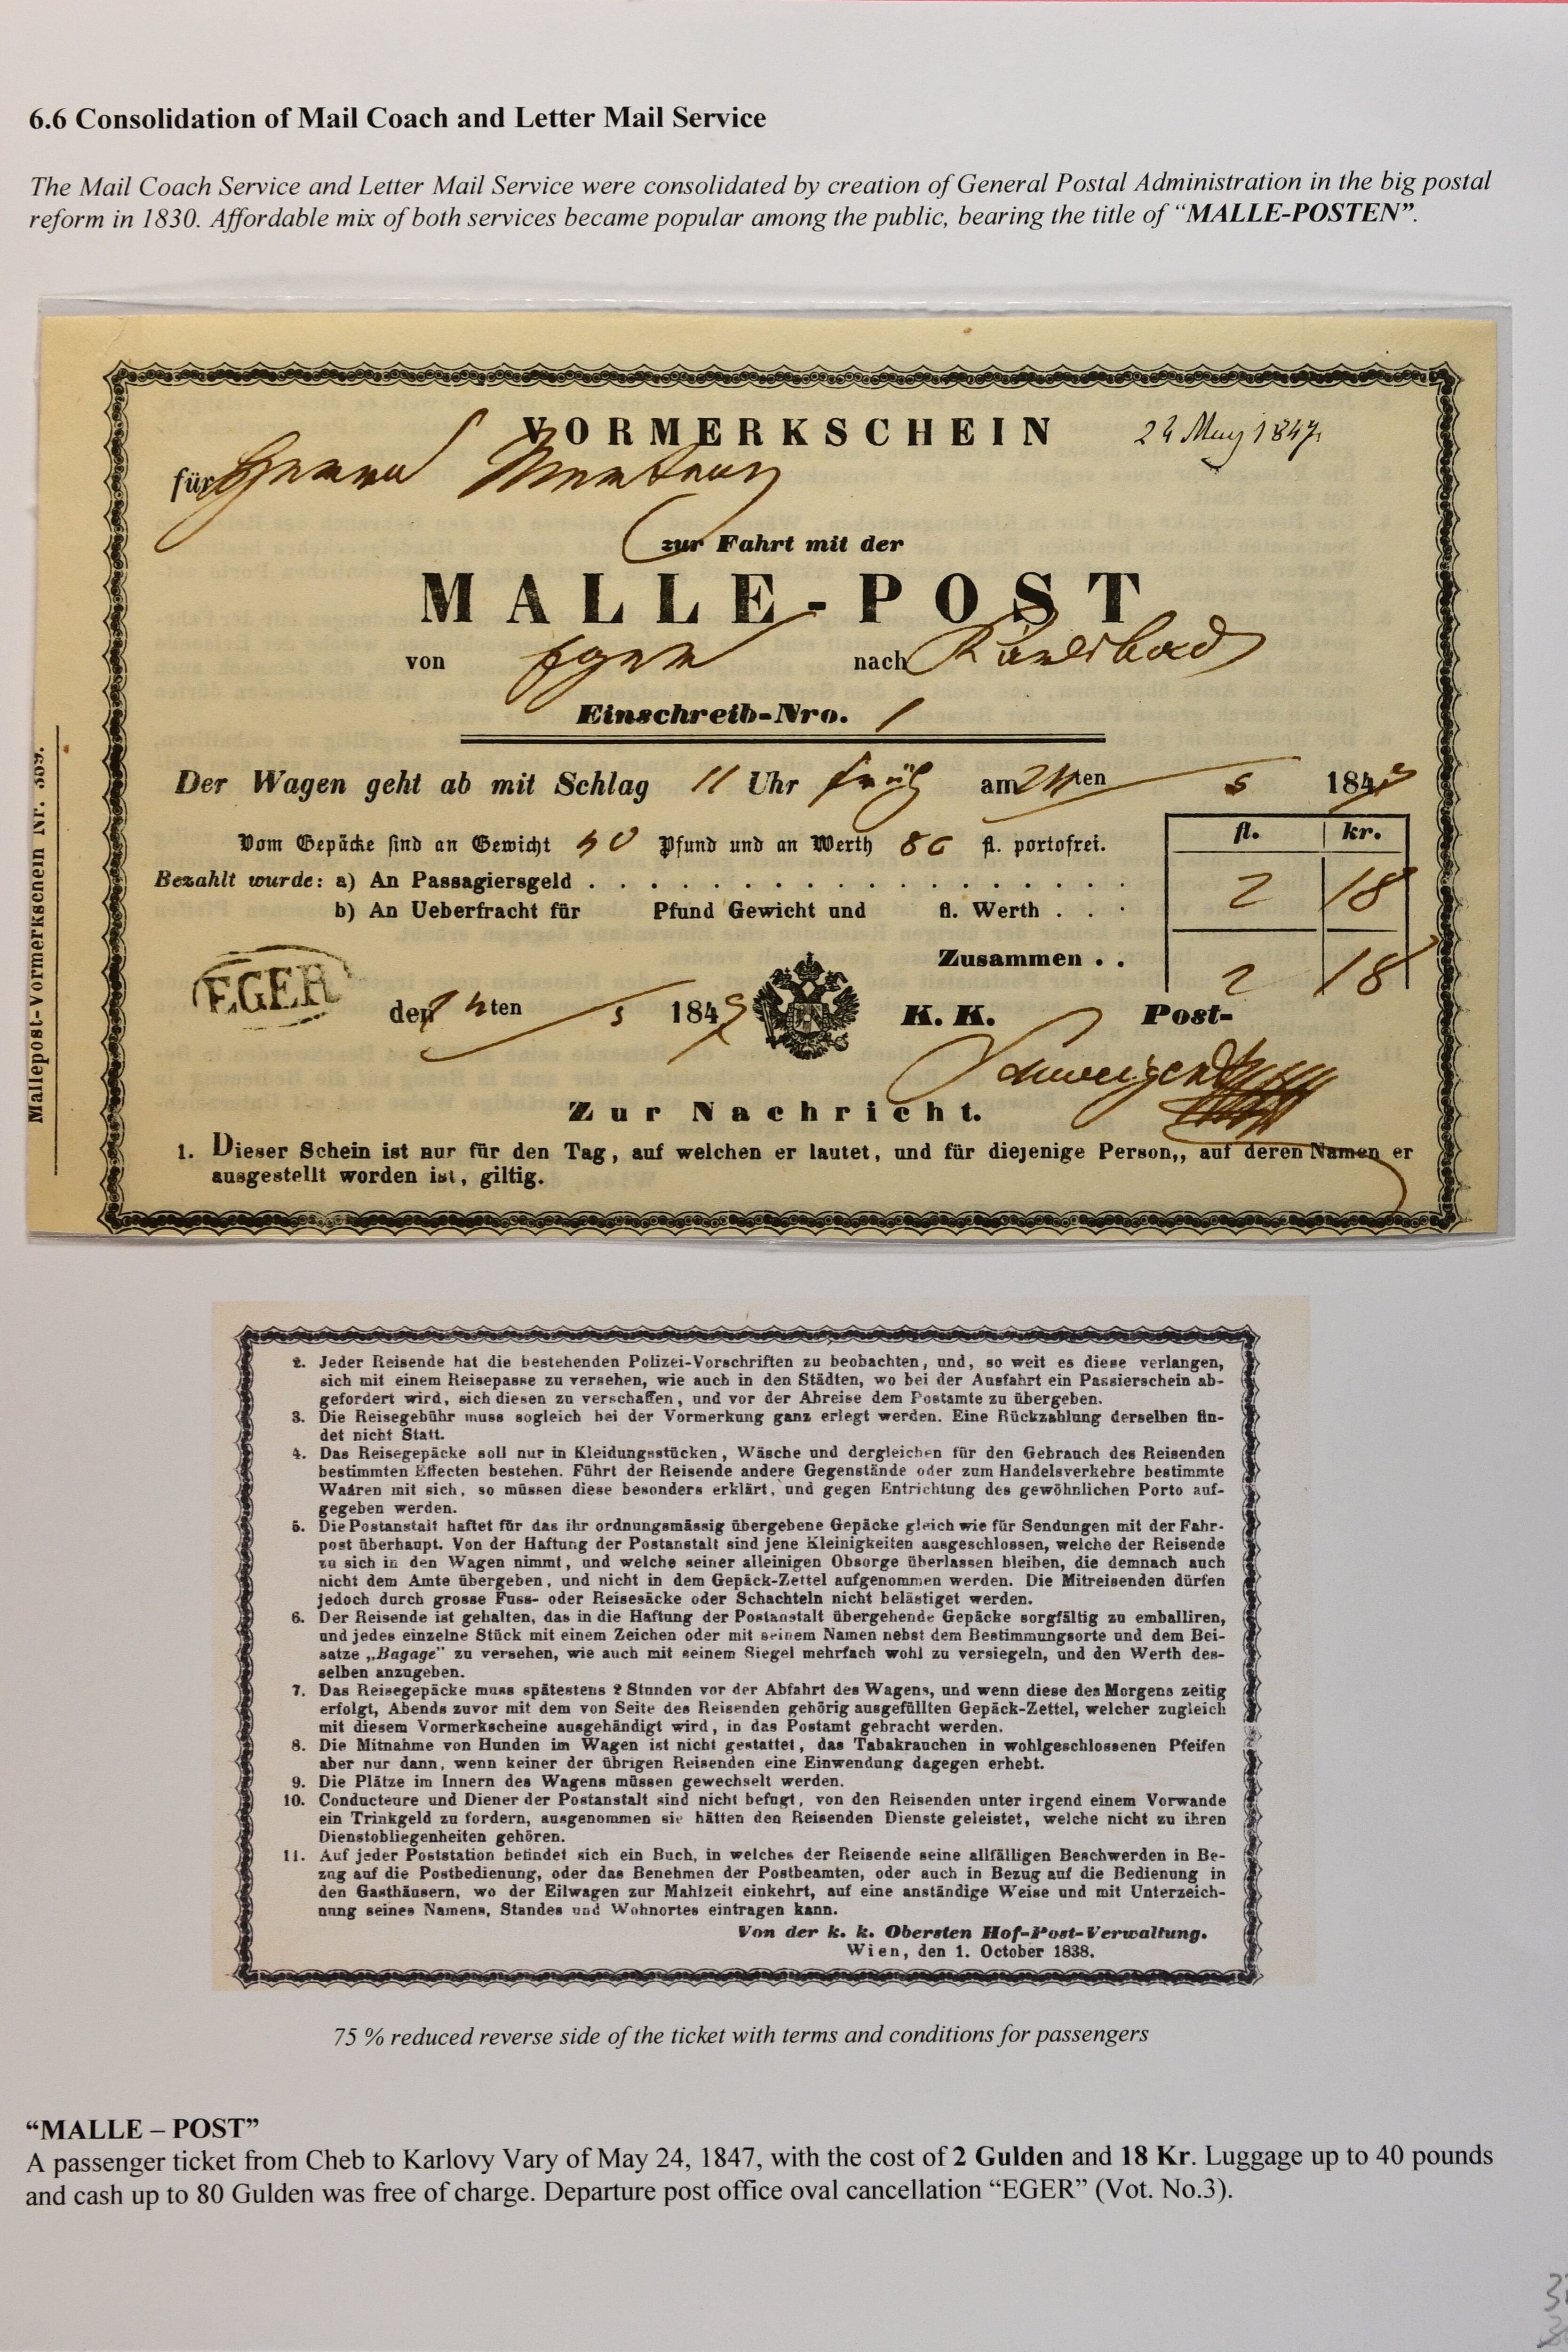 6.6 Consolidation of Mail Coach and Letter Mail Service
The Mail Coach Service and Letter Mail Service were consolidated by creation of General Postal Administration in the big postal
reform in 1830. Affordable mix of both services became popular among the public, bearing the title of “MALLE-POSTEN”.
VORMERKSCHEIN
24 May 1847
für Herrn
zur Fahrt mit der
MALLE-POST
von Eger nach Karlsbad
Einschreib-Nro. 1
Der Wagen geht ab mit Schlag 11 Uhr früh am 24ten 5 1847
fl. kr.
Vom Gepäcke sind an Gewicht 40 Pfund und an Werth 80 fl. portofrei.
Bezahlt wurde: a) An Passagiersgeld . . . . . . . . . . . . . . . . 2 18
b) An Ueberfracht für Pfund Gewicht und fl. Werth . . .
Zusammen . . 2 18
EGER
den 24ten 5 1847 K. K. Post-
Zur Nachricht.
1. Dieser Schein ist nur für den Tag, auf welchen er lautet, und für diejenige Person,, auf deren Namen er
ausgestellt worden ist, giltig.
Mallepost-Vormerkschein Nr. 359.
2. Jeder Reisende hat die bestehenden Polizei-Vorschriften zu beobachten, und, so weit es diese verlangen,
sich mit einem Reisepasse zu versehen, wie auch in den Städten, wo bei der Ausfahrt ein Passierschein ab-
gefordert wird, sich diesen zu verschaffen, und vor der Abreise dem Postamte zu übergeben.
3. Die Reisegebühr muss sogleich bei der Vormerkung ganz erlegt werden. Eine Rückzahlung derselben fin-
det nicht Statt.
4. Das Reisegepäcke soll nur in Kleidungsstücken, Wäsche und dergleichen für den Gebrauch des Reisenden
bestimmten Effecten bestehen. Führt der Reisende andere Gegenstände oder zum Handelsverkehre bestimmte
Waaren mit sich, so müssen diese besonders erklärt, und gegen Entrichtung des gewöhnlichen Porto auf-
gegeben werden.
5. Die Postanstalt haftet für das ihr ordnungsmässig übergebene Gepäcke gleich wie für Sendungen mit der Fahr-
post überhaupt. Von der Haftung der Postanstalt sind jene Kleinigkeiten ausgeschlossen, welche der Reisende
zu sich in den Wagen nimmt, und welche seiner alleinigen Obsorge überlassen bleiben, die demnach auch
nicht dem Amte übergeben, und nicht in dem Gepäck-Zettel aufgenommen werden. Die Mitreisenden dürfen
jedoch durch grosse Fuss- oder Reisesäcke oder Schachteln nicht belästiget werden.
6. Der Reisende ist gehalten, das in die Haftung der Postanstalt übergehende Gepäcke sorgfältig zu emballiren,
und jedes einzelne Stück mit einem Zeichen oder mit seinem Namen nebst dem Bestimmungsorte und dem Bei-
satze „Bagage” zu versehen, wie auch mit seinem Siegel mehrfach wohl zu versiegeln, und den Werth des-
selben anzugeben.
7. Das Reisegepäcke muss spätestens 2 Stunden vor der Abfahrt des Wagens, und wenn diese des Morgens zeitig
erfolgt, Abends zuvor mit dem von Seite des Reisenden gehörig ausgefüllten Gepäck-Zettel, welcher zugleich
mit diesem Vormerkscheine ausgehändigt wird, in das Postamt gebracht werden.
8. Die Mitnahme von Hunden im Wagen ist nicht gestattet, das Tabakrauchen in wohlgeschlossenen Pfeifen
aber nur dann, wenn keiner der übrigen Reisenden eine Einwendung dagegen erhebt.
9. Die Plätze im Innern des Wagens müssen gewechselt werden.
10. Conducteure und Diener der Postanstalt sind nicht befugt, von den Reisenden unter irgend einem Vorwande
ein Trinkgeld zu fordern, ausgenommen sie hätten den Reisenden Dienste geleistet, welche nicht zu ihren
Dienstobliegenheiten gehören.
11. Auf jeder Poststation befindet sich ein Buch, in welches der Reisende seine allfälligen Beschwerden in Be-
zug auf die Postbedienung, oder das Benehmen der Postbeamten, oder auch in Bezug auf die Bedienung in
den Gasthäusern, wo der Eilwagen zur Mahlzeit einkehrt, auf eine anständige Weise und mit Unterzeich-
nung seines Namens, Standes und Wohnortes eintragen kann.
Von der k. k. Obersten Hof-Post-Verwaltung.
Wien, den 1. October 1838.
75 % reduced reverse side of the ticket with terms and conditions for passengers
“MALLE – POST”
A passenger ticket from Cheb to Karlovy Vary of May 24, 1847, with the cost of 2 Gulden and 18 Kr. Luggage up to 40 pounds
and cash up to 80 Gulden was free of charge. Departure post office oval cancellation “EGER” (Vot. No.3).